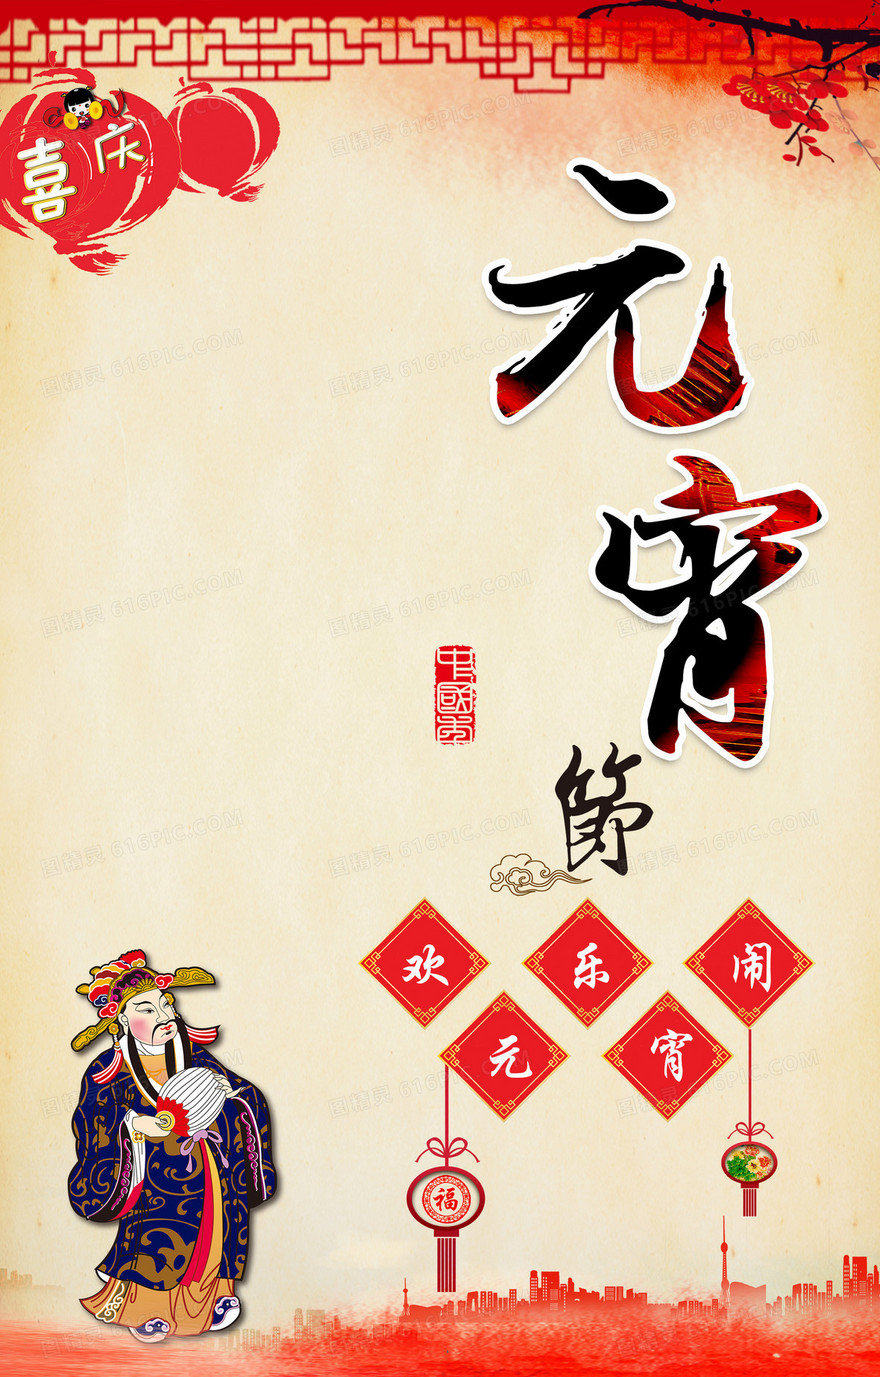 喜庆
元宵节
中國年
欢乐闹
元宵
福
图精灵 616PIC.COM